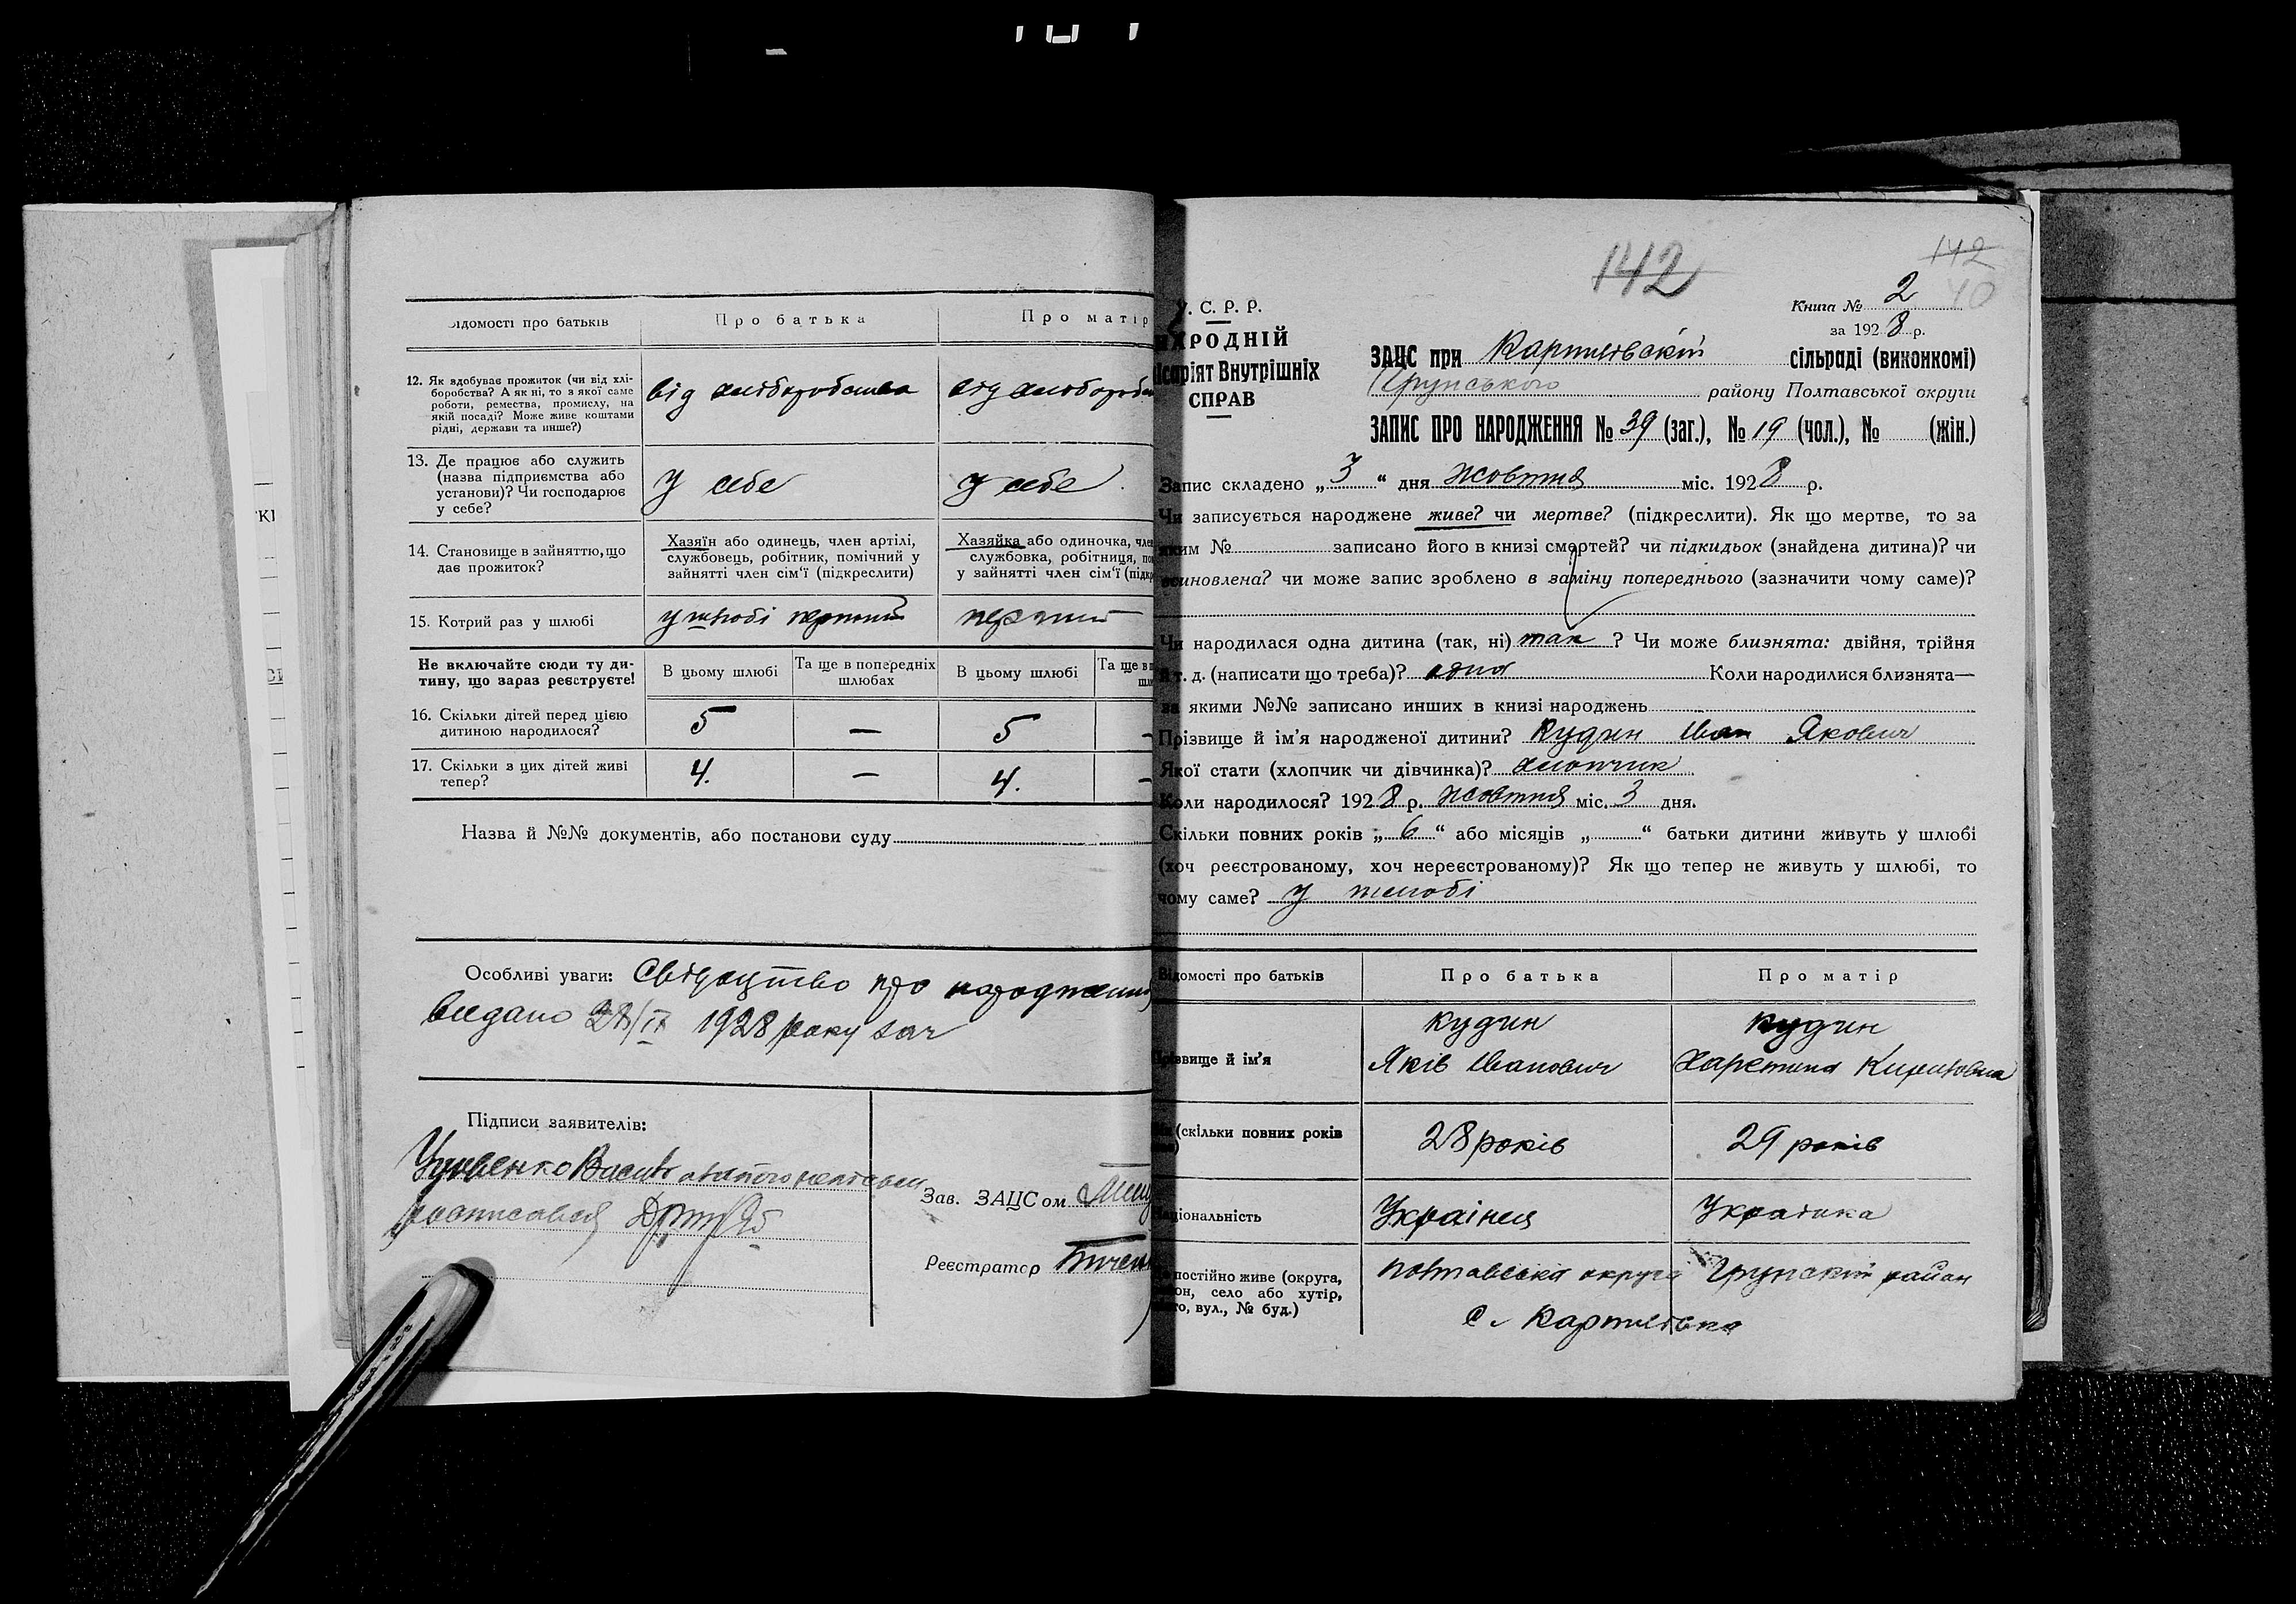 Відомості про батьків
Про батька
Про матір
12. Як здобуває прожиток (чи від хлі-
боробства? А як ні, то з якої саме
роботи, ремества, промислу, на
якій посаді? Може живе коштами
рідні, держави та инше?)
від хліборобства
від хлібороб
13. Де працює або служить
(назва підприємства або
установи)? Чи господарює
у себе?
У себе
У себе
14. Становище в зайняттю, що
дає прожиток?
Хазяїн або одинець, член артілі,
службовець, робітник, помічний у
зайнятті член сім'ї (підкреслити)
Хазяйка або одиночка, член
службовка, робітниця, по
у зайнятті член сім'ї (підкр
15. Котрий раз у шлюбі
у шлюбі перший
перший
Не включайте сюди ту ди-
тину, що зараз реєструєте!
В цьому шлюбі
Та ще в попередніх
шлюбах
В цьому шлюбі
Та ще в
16. Скільки дітей перед цією
дитиною народилося?
5 — 5 -
17. Скільки з цих дітей живі
тепер?
4. — 4. -
Назва й №№ документів, або постанови суду
Особливі уваги: Свідоцтво про народження
видано 28/IX 1928 року за №
Підписи заявителів:
росписався
Зав. ЗАЦСом
Реєстратор
142
142
40
У. С. Р. Р.
НАРОДНІЙ
ісаріят Внутрішніх
СПРАВ
Книга № 2
за 1928 р.
ЗАЦС при Картилівскій сільраді (виконкомі)
Грунського району Полтавської округи
ЗАПИС ПРО НАРОДЖЕННЯ № 39 (заг.), № 19 (чол.), № (жін.)
Запис складено „ 3 “ дня жовтня міс. 1928 р.
Чи записується народжене живе? чи мертве? (підкреслити). Як що мертве, то за
яким № записано його в книзі смертей? чи підкидьок (знайдена дитина)? чи
всиновлена? чи може запис зроблено в заміну попереднього (зазначити чому саме)?
Чи народилася одна дитина (так, ні) так ? Чи може близнята: двійня, трійня
й т. д. (написати що треба)? одна Коли народилися близнята—
за якими №№ записано инших в книзі народжень
Прізвище й ім'я народженої дитини? Кудин Іван Якович
Якої стати (хлопчик чи дівчинка)? хлопчик
Коли народилось? 1928 р. жовтня міс. 3 дня.
Скільки повних років „ 6 “ або місяців „ “ батьки дитини живуть у шлюбі
(хоч реєстрованому, хоч нереєстрованому)? Як що тепер не живуть у шлюбі, то
чому саме? У шлюбі
Відомості про батьків
Про батька
Про матір
Прізвище й ім'я
Кудин
Яків Іванович
Кудин
Харетина Кирилівна
(скільки повних років
28 років
29 років
Національність
Українец
Українка
постійно живе (округа,
он, село або хутір,
то, вул., № буд.)
Полтавська округа Грунскій район
С. Картилівка